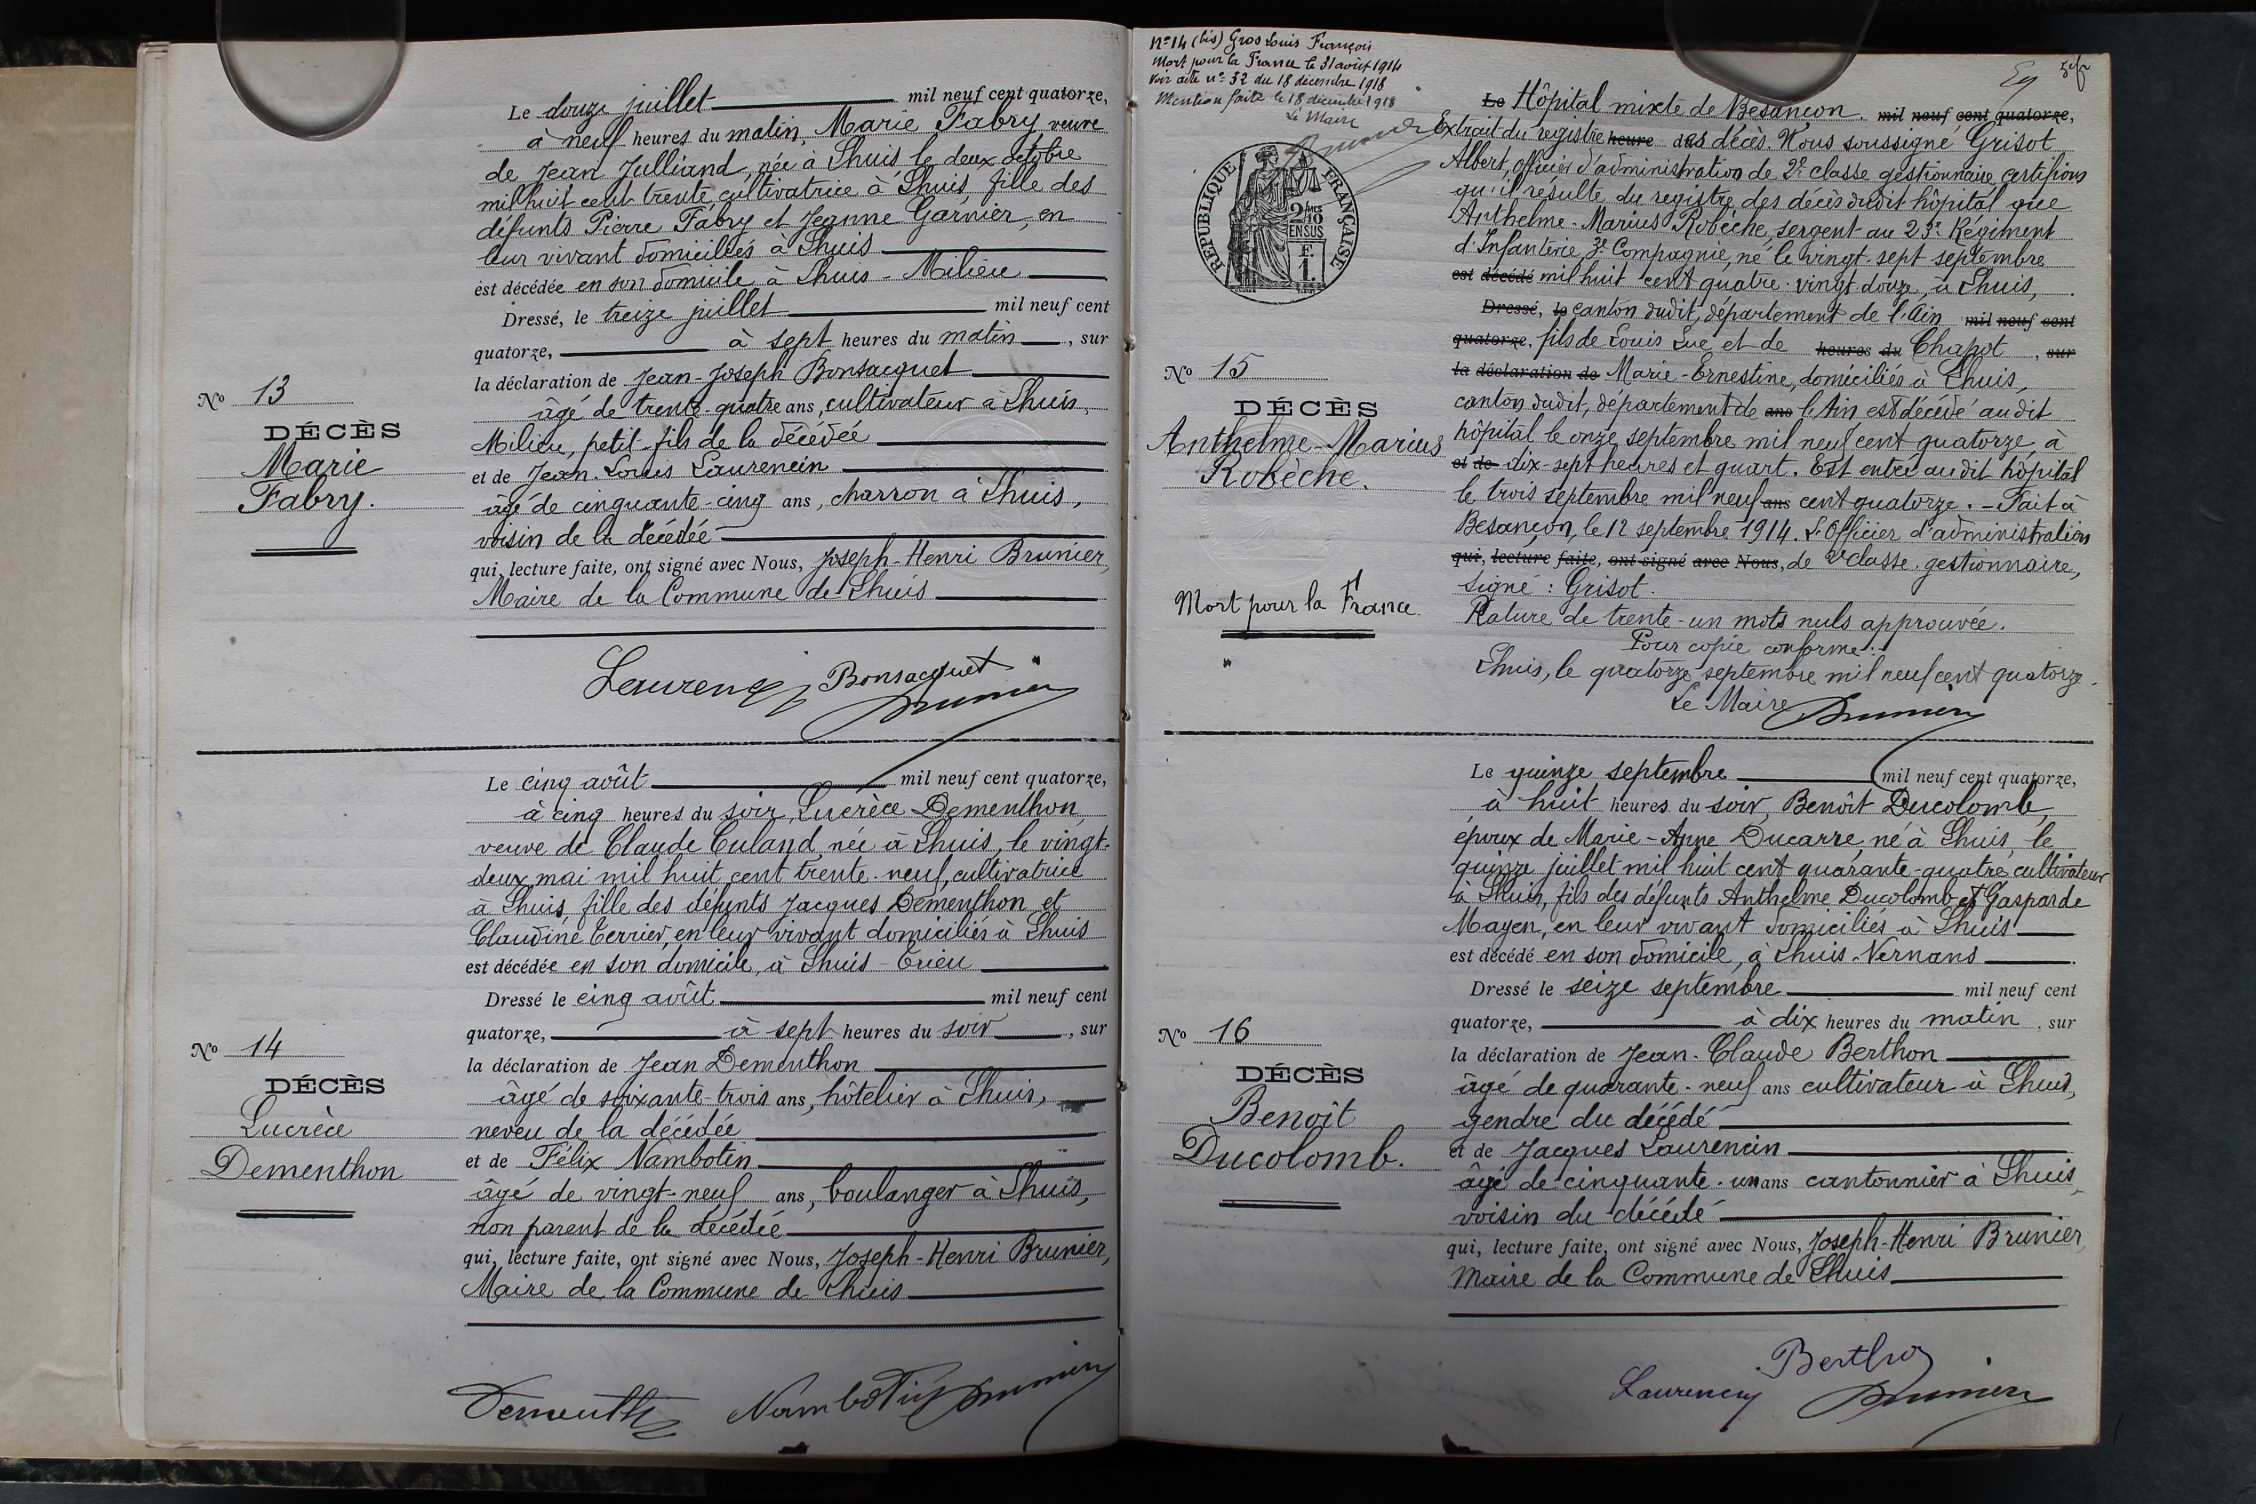 Le douze juillet mil neuf cent quatorze,
à neuf heures du matin, Marie Fabry veuve
de Jean Julliand, née à Lhuis le deux octobre
mil huit cent trente, cultivatrice à Lhuis, fille des
défunts Pierre Fabry et Jeanne Garnier, en
leur vivant domiciliés à Lhuis
est décédée en son domicile à Lhuis - Milieu
Dressé, le treize juillet mil neuf cent
quatorze, à sept heures du matin, sur
la déclaration de Jean-Joseph Bonsacquet
âgé de trente-quatre ans, cultivateur à Lhuis,
Milieu, petit-fils de la décédée
et de Jean-Louis Laurencin
âgé de cinquante-cinq ans, charron à Lhuis,
voisin de la décédée
qui, lecture faite, ont signé avec Nous, Joseph-Henri Brunier,
Maire de la Commune de Lhuis
No 13
DÉCÈS
Marie
Fabry.
Bonsacquet
Brunier
Le cinq août mil neuf cent quatorze,
à cinq heures du soir, Lucrèce Dementhon
veuve de Claude Culand, née à Lhuis, le vingt-
deux mai mil huit cent trente-neuf, cultivatrice
à Lhuis, fille des défunts Jacques Dementhon et
Claudine Terrier, en leur vivant domiciliés à Lhuis
est décédée en son domicile, à Lhuis - Crieu
Dressé le cinq août mil neuf cent
quatorze, à sept heures du soir, sur
la déclaration de Jean Dementhon
âgé de soixante-trois ans, hôtelier à Lhuis,
neveu de la décédée
et de Félix Nambotin
âgé de vingt-neuf ans, boulanger à Lhuis,
non parent de la décédée
qui, lecture faite, ont signé avec Nous, Joseph-Henri Brunier,
Maire de la Commune de Lhuis
No 14
DÉCÈS
Lucrèce
Dementhon
Nambotin Brunier
No 14 (bis) Gros Louis François
Mort pour la France le 31 août 1914
Voir acte no 32 du 18 décembre 1918
Mention faite le 18 décembre 1918
Le Maire
Brunier
RÉPUBLIQUE FRANÇAISE
2/10
EN SUS
F.
1.
Le Hôpital mixte de Besançon. mil neuf cent quatorze,
Extrait du registre heure des décès. Nous soussigné Grisot
Albert, officier d'administration de 2e classe gestionnaire, certifions
qu'il résulte du registre des décès dudit hôpital que
Anthelme-Marius Robèche, sergent au 23e Régiment
d'Infanterie, 3e Compagnie, né le vingt-sept septembre
est décédé mil huit cent quatre-vingt douze, à Lhuis,
Dressé, le canton dudit, département de l'Ain mil neuf cent
quatorze, fils de Louis Luc et de heures du Chapot, sur
la déclaration de Marie-Ernestine, domiciliés à Lhuis,
canton dudit, département de ans l'Ain est décédé audit
hôpital le onze septembre mil neuf cent quatorze, à
et de dix-sept heures et quart. Est entré audit hôpital
le trois septembre mil neuf ans cent quatorze. - Fait à
Besançon, le 12 septembre 1914. L'Officier d'administration
qui, lecture faite, ont signé avec Nous, de 2e classe gestionnaire,
signé : Grisot.
Rature de trente-un mots nuls approuvée.
Pour copie conforme :
Lhuis, le quatorze septembre mil neuf cent quatorze.
Le Maire Brunier
No 15
DÉCÈS
Anthelme-Marius
Robèche.
Mort pour la France
Le quinze septembre mil neuf cent quatorze,
à huit heures du soir, Benoît Ducolomb,
époux de Marie-Anne Ducarre, né à Lhuis, le
quinze juillet mil huit cent quarante-quatre, cultivateur
à Lhuis, fils des défunts Anthelme Ducolomb et Gasparde
Mayen, en leur vivant domiciliés à Lhuis
est décédé en son domicile, à Lhuis-Nernans
Dressé le seize septembre mil neuf cent
quatorze, à dix heures du matin, sur
la déclaration de Jean-Claude Berthon
âgé de quarante-neuf ans cultivateur à Lhuis,
gendre du décédé
et de Jacques Laurencin
âgé de cinquante-un ans cantonnier à Lhuis,
voisin du décédé
qui, lecture faite, ont signé avec Nous, Joseph-Henri Brunier
Maire de la Commune de Lhuis
No 16
DÉCÈS
Benoît
Ducolomb.
Berthon
Brunier